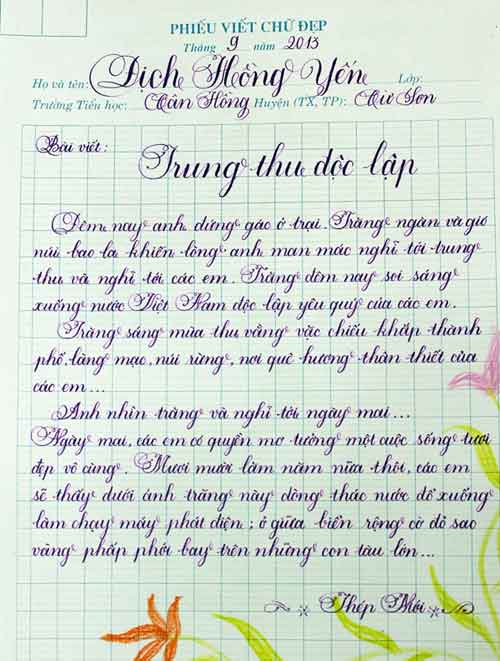 PHIẾU VIẾT CHỮ ĐẸP
Tháng 9 năm 2013
Họ và tên: Dịch Hồng Yến Lớp:
Trường Tiểu học: Tân Hồng Huyện (TX, TP): Từ Sơn
Bài viết:
Trung thu độc lập
Đêm nay anh đứng gác ở trại. Trăng ngàn và gió
núi bao la khiến lòng anh man mác nghĩ tới trung
thu và nghĩ tới các em. Trăng đêm nay soi sáng
xuống nước Việt Nam độc lập yêu quý của các em.
Trăng sáng mùa thu vằng vặc chiếu khắp thành
phố, làng mạc, núi rừng, nơi quê hương thân thiết của
các em...
Anh nhìn trăng và nghĩ tới ngày mai...
Ngày mai, các em có quyền mơ tưởng một cuộc sống tươi
đẹp vô cùng. Mươi mười lăm năm nữa thôi, các em
sẽ thấy dưới ánh trăng này dòng thác nước đổ xuống
làm chạy máy phát điện; ở giữa biển rộng cờ đỏ sao
vàng phấp phới bay trên những con tàu lớn...
Thép Mới